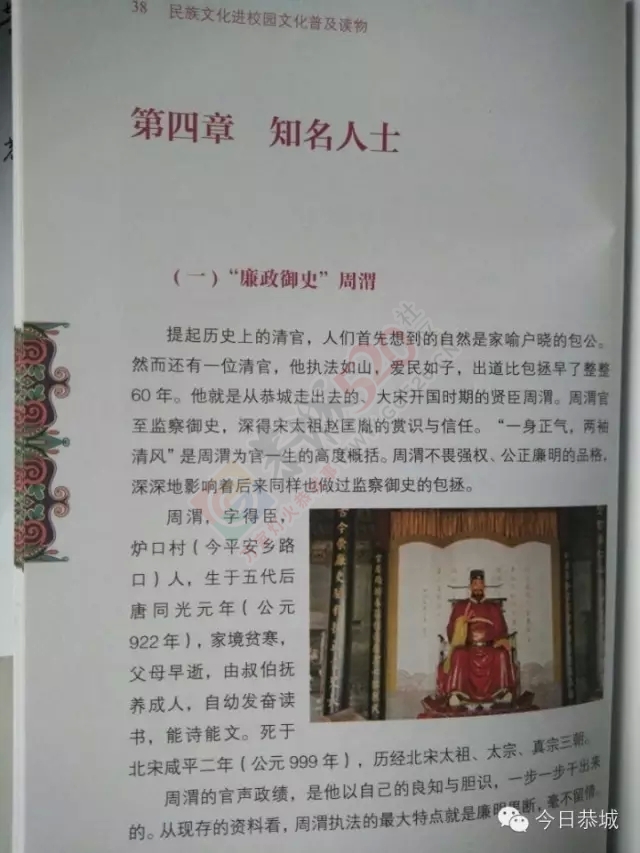 38 民族文化进校园文化普及读物
第四章 知名人士
（一）“廉政御史”周渭
提起历史上的清官，人们首先想到的自然是家喻户晓的包公。
然而还有一位清官，他执法如山，爱民如子，出道比包拯早了整整
60年。他就是从恭城走出去的、大宋开国时期的贤臣周渭。周渭官
至监察御史，深得宋太祖赵匡胤的赏识与信任。“一身正气，两袖
清风”是周渭为官一生的高度概括。周渭不畏强权、公正廉明的品格，
深深地影响着后来同样也做过监察御史的包拯。
周渭，字得臣，
炉口村（今平安乡路
口）人，生于五代后
唐同光元年（公元
922年），家境贫寒，
父母早逝，由叔伯抚
养成人，自幼发奋读
书，能诗能文。死于
北宋咸平二年（公元999年），历经北宋太祖、太宗、真宗三朝。
周渭的官声政绩，是他以自己的良知与胆识，一步一步干出来
的。从现存的资料看，周渭执法的最大特点就是廉明果断，毫不留情。
恭城520社
今日恭城